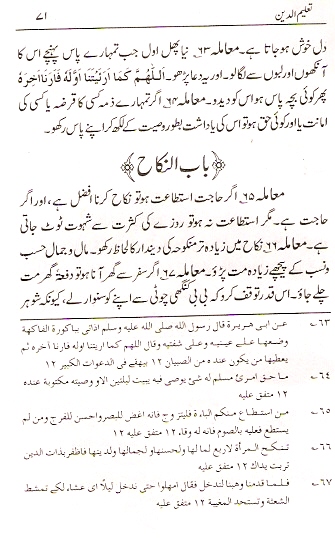 تعلیم الدین ۷۱
دل خوش ہو جاتا ہے۔ معاملہ ۶۳۔ نیا پھل اول جب تمہارے پاس پہنچے اس کا
آنکھوں اور لبوں سے لگا لو۔ اور یہ دعا پڑھو۔ اَللّٰھُمَّ کَمَا اَرَیْتَنَا اَوَّلَهٗ فَاَرِنَا اٰخِرَهٗ
پھر کوئی بچہ پاس ہو اس کو دیدو۔ معاملہ ۶۴ اگر تمہارے ذمہ کسی کا قرضہ یا کسی کی
امانت یا اور کوئی حق ہو تو اس کی یادداشت بطور وصیت کے لکھ کر اپنے پاس رکھو۔
باب النکاح
معاملہ ۶۵ اگر حاجت استطاعت ہو تو نکاح کرنا افضل ہے، اور اگر
حاجت ہے۔ مگر استطاعت نہ ہو تو روزے کی کثرت سے شہوت ٹوٹ جاتی
ہے۔ معاملہ ۶۶ نکاح میں زیادہ تر منکوحہ کی دیندار کا لحاظ رکھو۔ مال و جمال حسب
ونسب کے پیچھے زیادہ مت پڑو۔ معاملہ ۶۷ اگر سفر سے گھر آنا ہو تو دفعۃً گھر مت
چلے جاؤ۔ اس قدر توقف کرو کہ بی بی کنگھی چوٹی سے اپنے کو سنوار لے، کیونکہ شوہر
۶۳۔ عن ابی ھریرۃ قال رسول اللہ صلی اللہ علیہ وسلم اذا اتی بباکورۃ الفاکھۃ
وضعھا علی عینیہ وعلی شفتیہ وقال اللھم کما اریتنا اولہ فارنا اخرہ ثم
یعطیھا من یکون عندہ من الصبیان ۱۲ بیھقی فی الدعوات الکبیر ۱۲
۶۴۔ ما حق امرئ مسلم لہ شئ یوصی فیہ یبیت لیلتین الا و وصیتہ مکتوبۃ عندہ
۱۲ متفق علیہ
۶۵۔ من استطاع منکم الباءۃ فلیتزوج فانہ اغض للبصر واحسن للفرج ومن لم
یستطع فعلیہ بالصوم فانہ لہ وجاء ۱۲ متفق علیہ
۶۶۔ تنکح المرأۃ لاربع لما لھا ولحسبھا ولجمالھا ولدینھا فاظفر بذات الدین
تربت یداک ۱۲ متفق علیہ
۶۷۔ فلما قدمنا وھبنا لندخل فقال امھلوا حتی ندخل لیلاً ای عشاء لکے تمتشط
الشعثۃ وتستحد المغیبۃ ۱۲ متفق علیہ